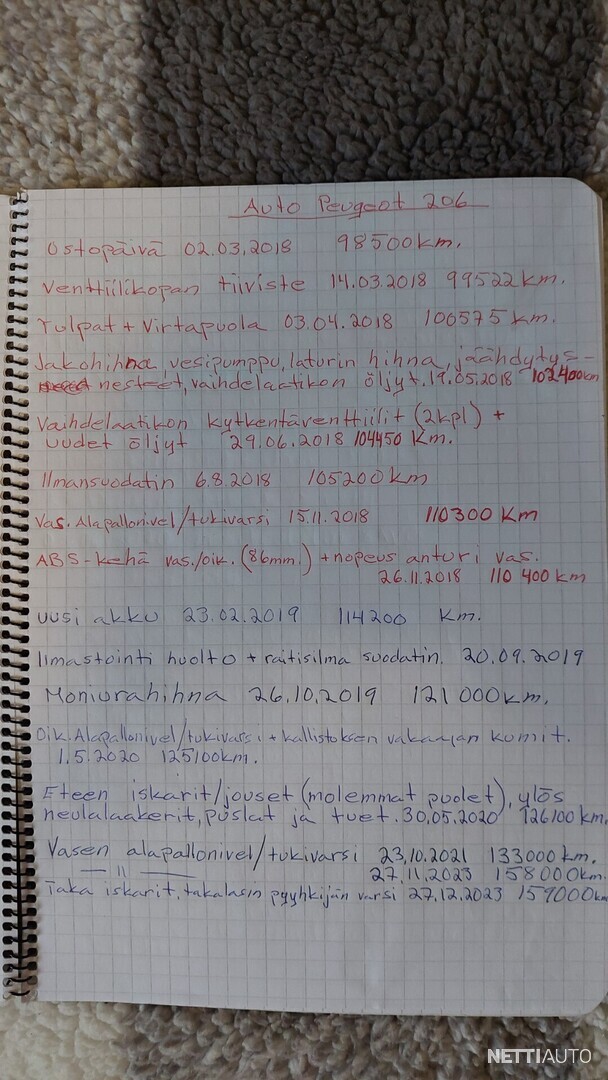 Auto Peugeot 206
Ostopäivä 02.03.2018 98500km.
Venttiilikopan tiiviste 14.03.2018 99522km.
Tulpat + Virtapuola 03.04.2018 100575 km.
Jakohihna, vesipumppu, laturin hihna, jäähdytys-
nesteet, vaihdelaatikon öljyt. 19.05.2018 102400km
Vaihdelaatikon kytkentäventtiilit (2kpl) +
uudet öljyt 29.06.2018 104450 Km.
Ilmansuodatin 6.8.2018 105200km
Vas. Alapallonivel/tukivarsi 15.11.2018 110300 Km
ABS-kehä vas./oik. (86mm.) + nopeus anturi vas.
26.11.2018 110 400 km
uusi akku 23.02.2019 114200 Km.
Ilmastointi huolto + raitisilma suodatin. 20.09.2019
Moniurahihna 26.10.2019 121000km.
Oik. Alapallonivel/tukivarsi + kallistuksen vakaajan kumit.
1.5.2020 125100km.
Eteen iskarit/jouset (molemmat puolet), ylös
neulalaakerit, puslat ja tuet. 30.05.2020 126100km.
Vasen alapallonivel/tukivarsi 23.10.2021 133000km.
— 11 — 27.11.2023 158000km.
Taka iskarit, takalasin pyyhkijän varsi 27.12.2023 159000km
NETTIAUTO